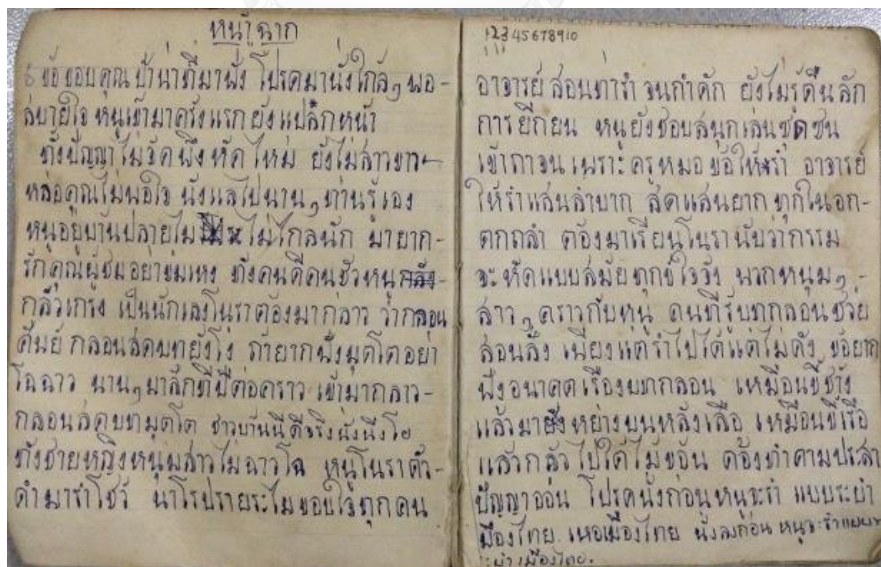 หน้าฉาก
ขอขอบคุณป้าน่าที่มานั่ง โปรดมานั่งใกล้ๆ พอ-
สบายใจ หนูเข้ามาครั้งแรกยังแปลกหน้า
ทั้งปัญญาไม่จัดพึ่งหัดใหม่ ยังไม่สาวขาว
หล่อคุณไม่พอใจ นั่งแลไปนานๆ ท่านรู้เอง
หนูอยู่บ้านปลายไม ไม่ไกลนัก มายาก-
รักคุณผู้ชมอย่าข่มเหง ทั้งคนดีคนชั่วหนู
กลัวเกรง เป็นนักเลงโนราต้องมากล่าว ว่ากลอน
กลอนสดบทยังโง่ ถ้ายากฟังมุตโตอย่า
โฉฉาว นานๆ มาสักทีปีต่อคราว เข้ามากลาว-
กลอนสดบทมุตโต ชาวบ้านนี้ดีจริงนั่งนิ่งโข
ทั้งชายหญิงหนุ่มสาวไม่ฉาวโฉ หนูโนราตัว-
ดำมารำโชว์ ขอบใจทุกคน
12345678910
อาจารย์สอนท่ารำ จนกำดัก ยังไม่รู้ตื้นลึก
การยึกยน หนูยังชอบสนุกเล่นซุดซน
เข้าตาจนเพราะครูหมอขอให้รำ อาจารย์
ให้รำแสนลำบาก สัดแสนยากทุกในอก-
ตกถลำ ต้องมาเรียนโนรานับว่ากรรม
จะหัดแบบสมัยทุกข์ใจจัง พวกหนุ่มๆ
สาวๆ คราวกับหนู คนที่รู้บทกลอนช่วย
สอนสั่ง เพียงแต่รำไปได้แต่ไม่ดัง ข้อยาก
ฟังอนาคตเรื่องบทกลอน เหมือนขี่ช้าง
แล้วมายังหย่างบนหลังเสือ เหมือนขี่เรือ
แล้วกลัวไปใต้ไม้ขอน ต้องทำตามประสา
ปัญญาอ่อน โปรดนั่งก่อนหนูจะรำ แบบระบำ
เมืองไทย. เหอเมืองไทย นั่งลงก่อน หนูจะรำแบบ
ระบำเมืองไทย.